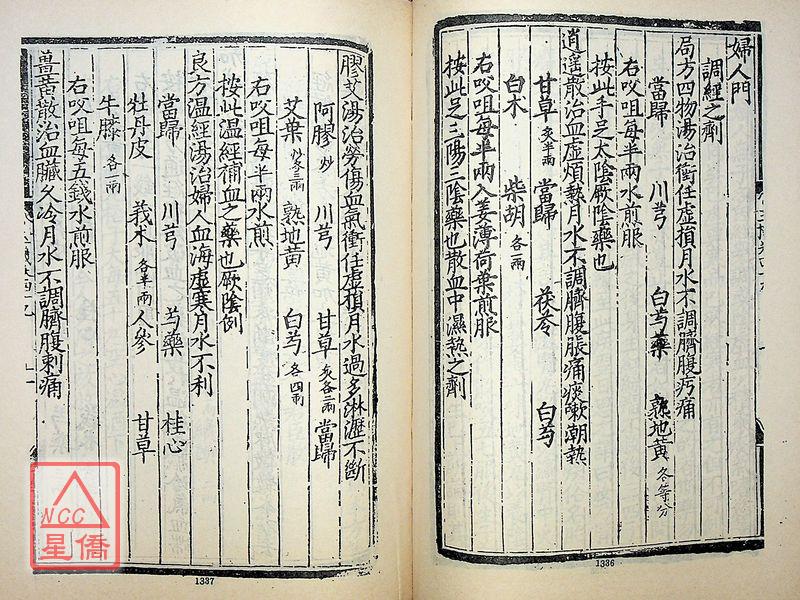 婦人門
調經之劑
局方四物湯治衝任虛損月水不調臍腹㽲痛
當歸 川芎 白芍藥 熟地黃 各等分
右㕮咀每半兩水煎服
按此手足太陰厥陰藥也
逍遥散治血虛煩熱月水不調臍腹脹痛痰嗽潮熱
甘草 炙半兩 當歸 茯苓 白芍
白朮 柴胡 各一兩
右㕮咀每半兩入姜薄荷葉煎服
按此足三陽三陰藥也散血中濕熱之劑
1336
膠艾湯治勞傷血氣衝任虛損月水過多淋瀝不斷
阿膠 炒 川芎 甘草 炙各二兩 當歸
艾葉 炒各三兩 熟地黃 白芍 各四兩
右㕮咀每半兩水煎
按此温經補血之藥也厥陰例
良方温經湯治婦人血海虛寒月水不利
當歸 川芎 芍藥 桂心
牡丹皮 莪术 各半兩 人參 甘草
牛膝 各一兩
右㕮咀每五錢水煎服
薑黃散治血臟久冷月水不調臍腹刺痛
1337
NCC
星僑